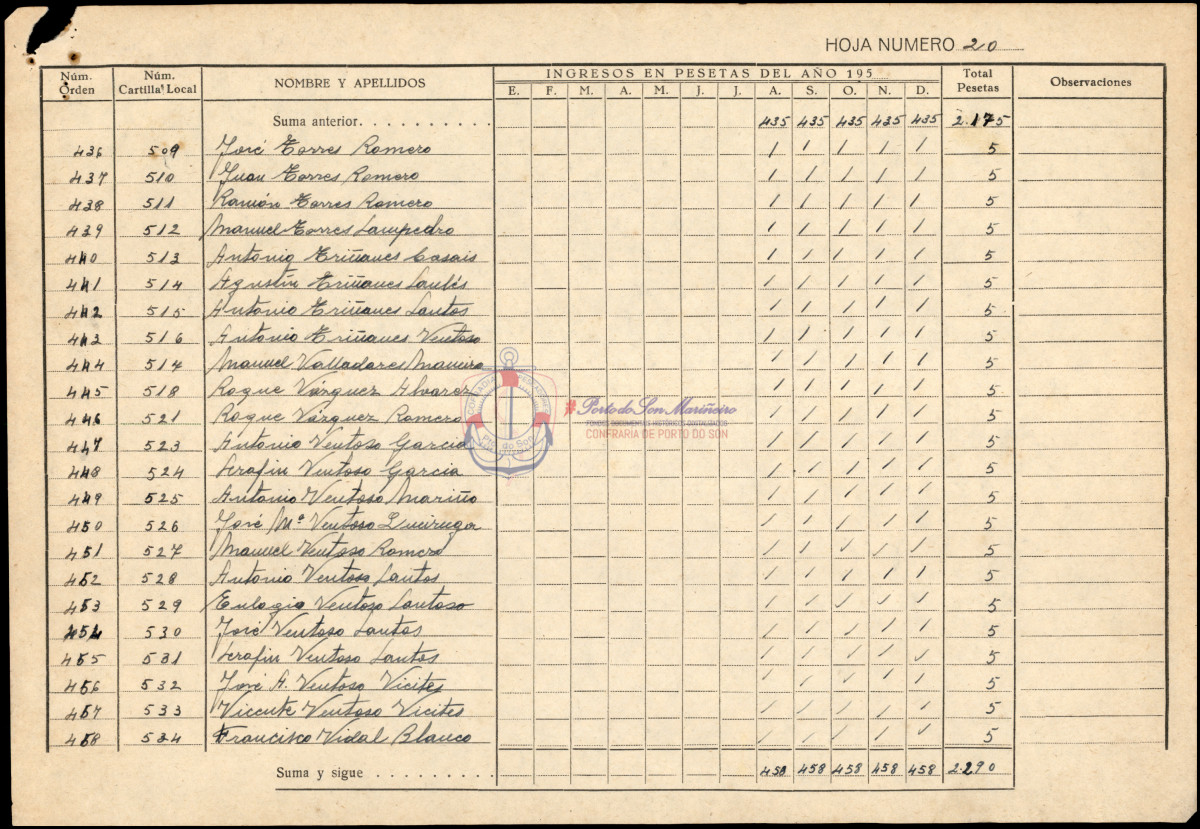 HOJA NUMERO 20
Núm. Orden Núm. Cartilla Local NOMBRE Y APELLIDOS INGRESOS EN PESETAS DEL AÑO 195 Total Pesetas Observaciones
E. F. M. A. M. J. J. A. S. O. N. D.
Suma anterior. . . . . . . . . . 435 435 435 435 435 2.175
436 509 José Torres Romero / / / / / 5
437 510 Juan Torres Romero / / / / / 5
438 511 Ramón Torres Romero / / / / / 5
439 512 Manuel Torres Sampedro / / / / / 5
440 513 Antonio Triñanes Casais / / / / / 5
441 514 Agustín Triñanes Santos / / / / / 5
442 515 Antonio Triñanes Santos / / / / / 5
443 516 Antonio Triñanes Ventoso / / / / / 5
444 517 Manuel Valladares Maneiro / / / / / 5
445 518 Roque Vázquez Alvarez / / / / / 5
446 521 Roque Vázquez Romero / / / / / 5
447 523 Antonio Ventoso García / / / / / 5
448 524 Serafin Ventoso Garcia / / / / / 5
449 525 Antonio Ventoso Mariño / / / / / 5
450 526 José Mª Ventoso Queiruga / / / / / 5
451 527 Manuel Ventoso Romero / / / / / 5
452 528 Antonio Ventoso Santos / / / / / 5
453 529 Eulogio Ventoso Santoso / / / / / 5
454 530 José Ventoso Santos / / / / / 5
455 531 Serafin Ventoso Santos / / / / / 5
456 532 José A. Ventoso Vieites / / / / / 5
457 533 Vicente Ventoso Vieites / / / / / 5
458 534 Francisco Vidal Blanco / / / / / 5
Suma y sigue . . . . . . . . . 458 458 458 458 458 2.290
Porto do Son Mariñeiro
FONDOS DOCUMENTAIS HISTÓRICOS DIXITALIZADOS
CONFRARÍA DE PORTO DO SON